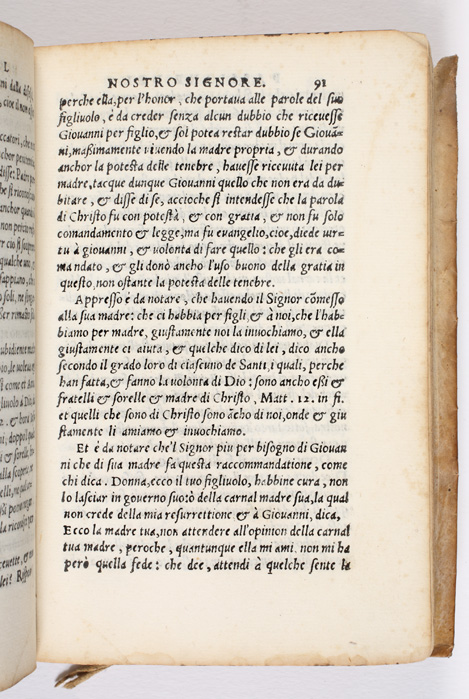 NOSTRO SIGNORE. 91
perche ella, per l'honor, che portava alle parole del suo
figliuolo, è da creder senza alcun dubbio che ricevesse
Giovanni per figlio, & sol potea restar dubbio se Giovã-
ni, maßimamente vivendo la madre propria, & durando
anchor la potesta delle tenebre, havesse ricevuta lei per
madre, tacque dunque Giovanni quello che non era da du-
bitare, & disse di se, accioche si intendesse che la parola
di Christo fu con potestà, & con gratia, & non fu solo
comandamento & legge, ma fu evangelio, cioe, diede uir-
tu à giovanni, & volonta di fare quello: che gli era co-
mandato, & gli donò ancho l'uso buono della gratia in
questo, non ostante la potesta delle tenebre.
Appresso è da notare, che havendo il Signor cõmesso
alla sua madre: che ci habbia per figli, & à noi, che l'hab-
biamo per madre, giustamente noi la invochiamo, & ella
giustamente ci aiuta, & quelche dico di lei, dico ancho
secondo il grado loro di ciascuno de Santi, i quali, perche
han fatta, & fanno la volonta di Dio: sono anche eßi &
fratelli & sorelle & madre di Christo, Matt. 12. in fi.
et quelli che sono di Christo sono ãcho di noi, onde & giu
stamente li amiamo & invochiamo.
Et è da notare che'l Signor piu per bisogno di Giovan
ni che di sua madre fa questa raccommandatione, come
chi dica. Donna, ecco il tuo figliuolo, habbine cura, non
lo lasciar in governo suo: ò della carnal madre sua, la qual
non crede della mia resurrettione & à Giovanni, dica,
Ecco la madre tua, non attendere all'opinion della carnal
tua madre, peroche, quantunque ella mi ami, non mi ha
però quella fede: che dee, attendi à quelche sente la